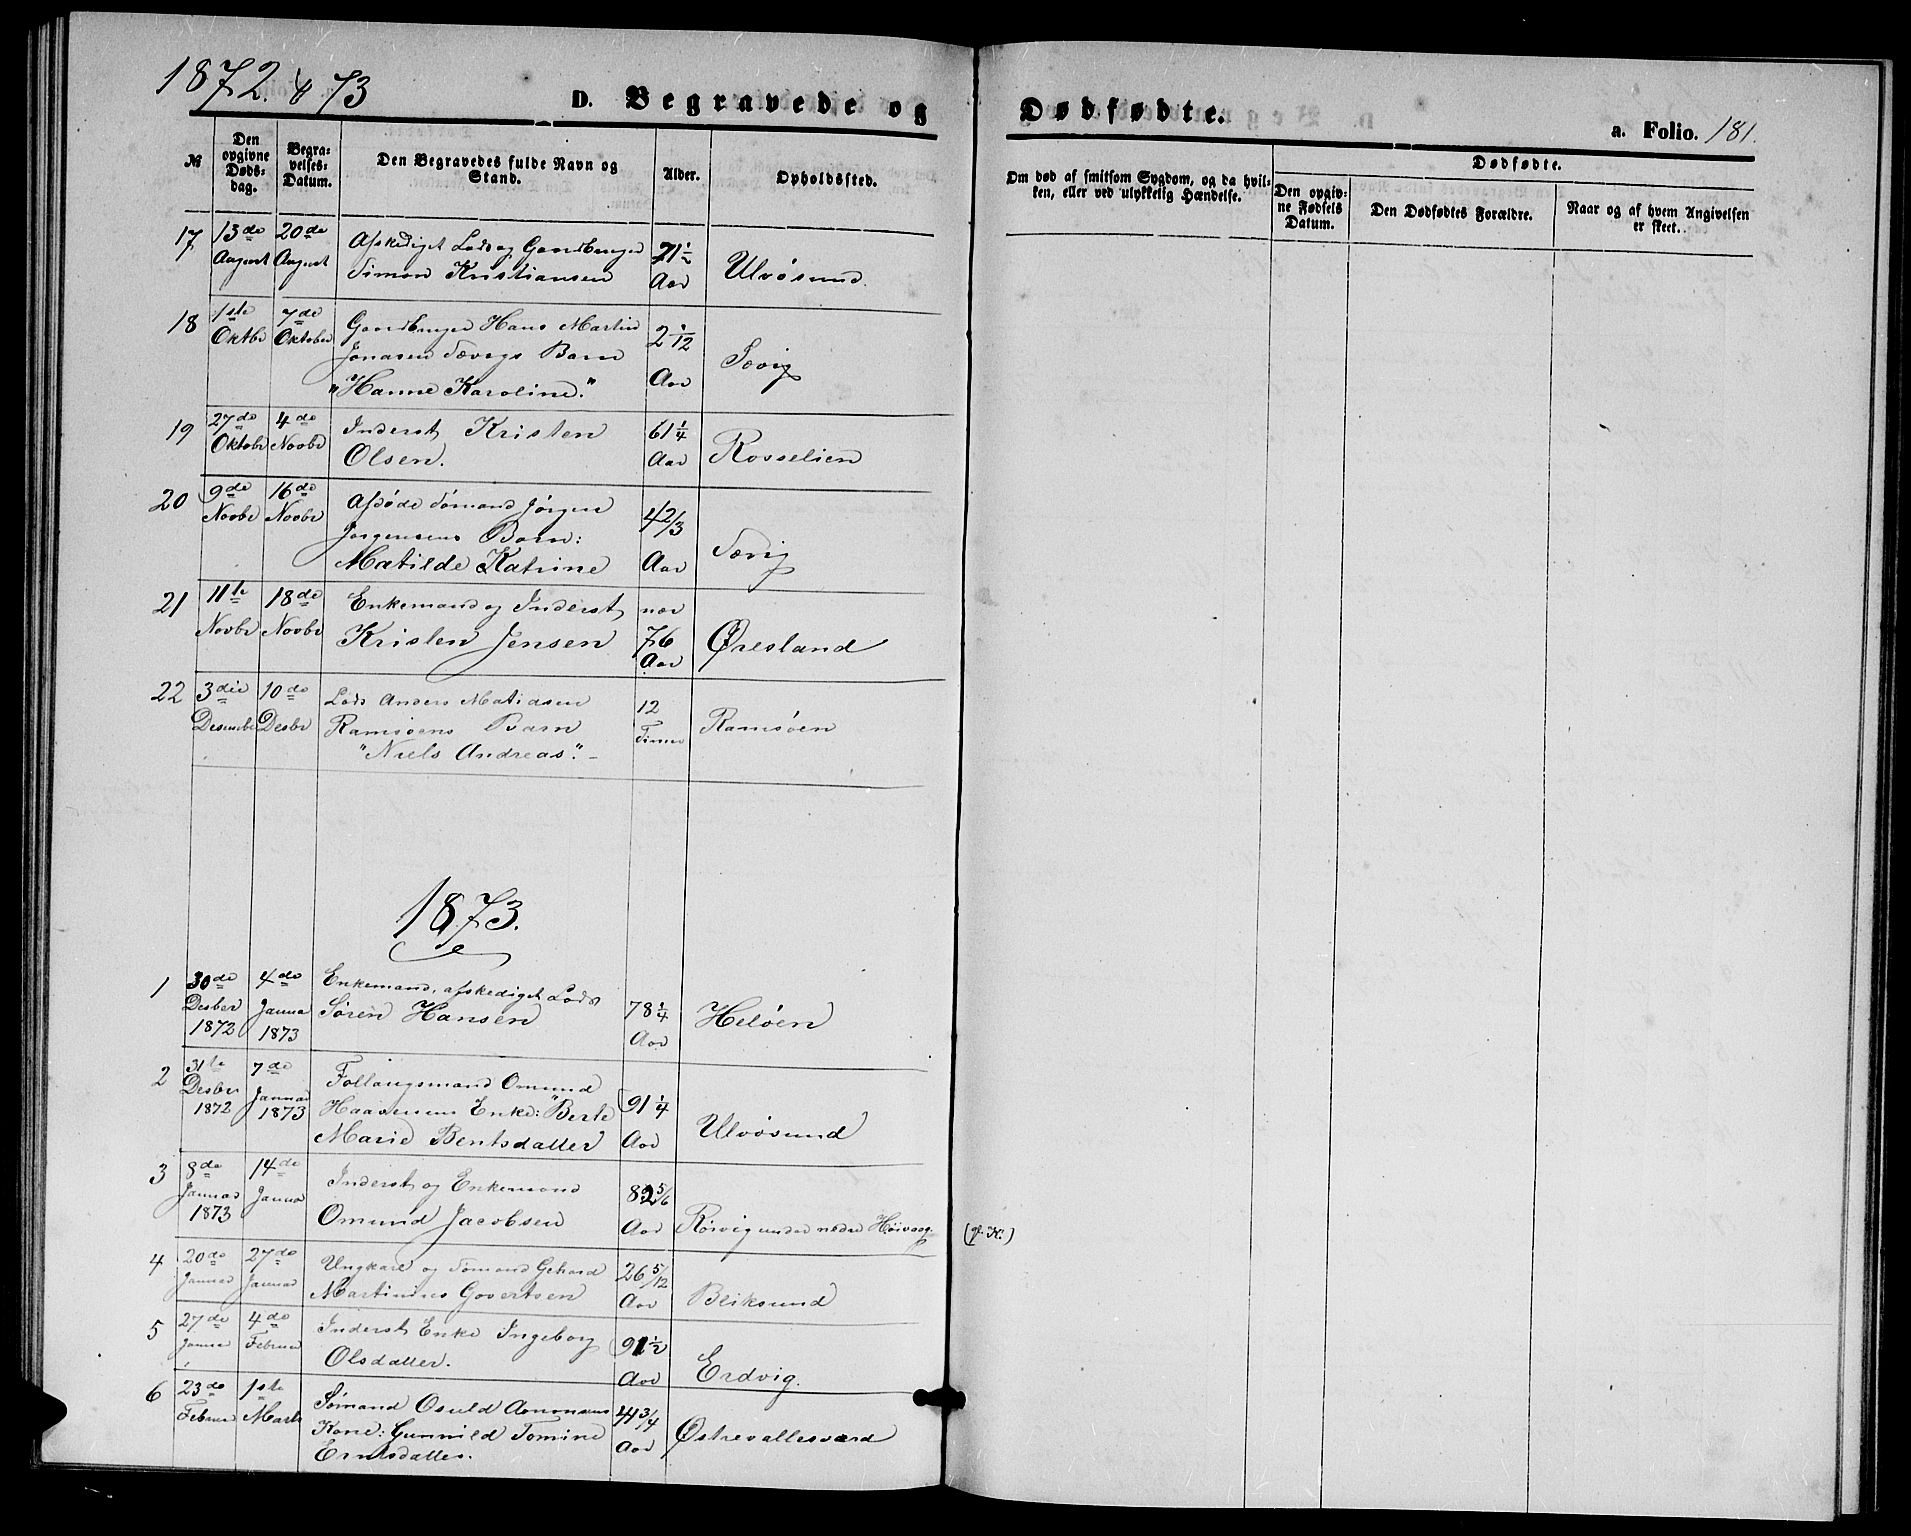 1872. & 73
D. Begravede og Dødfødte.
a. Folio. 181.
№
Den opgivne Døds-dag.
Begra-velses-Datum.
Den Begravedes fulde Navn og Stand.
Alder.
Opholdssted.
Om død af smitsom Sygdom, og da hvil-
ken, eller ved ulykkelig Hændelse.
Dødfødte.
Den opgiv-ne Fødsels Datum.
Den Dødfødtes Forældre.
Naar og af hvem Angivelsen er skeet.
17 13de 20de Afskediget Lods og Gaardbruger 71 1/2
August August Simon Kristiansen Aar Ulvøsund.
18 1ste 7de Gaardbruger Hans Martin 2 1/12
Oktbr Oktober Jonasen Sævigs Barn Sævig
"Hanne Karoline." Aar
19 27de 4de Inderst Kristen 61 1/4
Oktobr Novbr Olsen. Aar Rosselien
20 9de 16de Afdøde Sømand Jörgen 4 2/3
Novbr Novbr Jørgensens Barn: Sævig
Matilde Katrine Aar
21 11te 18de Enkemand og Inderst nær
Novbr Novbr Kristen Jensen 76 Øresland
Aar
22 3die 10de Lods Anders Matiasen 12
Desembr Desbr Ramsøens Barn Timer Ramsøen
"Niels Andreas". -
1873.
1 30de 4de Enkemand, afskediget Lods
Desber Januar Søren Hansen 78 1/4 Heløen
1872 1873 Aar
2 31te 7de Follaugsmand Omund
Desbr Januar Haavesens Enke: "Berte 91 1/4
1872 1873 Marie Bentsdatter Aar Ulvøsund
3 8de 14de Inderst og Enkemand 82 5/6
Januar Januar
1873 Omund Jacobsen Aar Røivig under nedre Høivaag (gl. K.)
4 20de 27de Ungkarl og Sømand Gehard 26 5/12
Januar Januar Martinius Govertsen Aar Bliksund
5 27de 4de Inderst Enke Ingeborg 91 1/2
Januar Februar Olsdatter. Aar Erdvig.
6 23de 1ste Sømand Osuld Aanonsens 41 3/4
Februar Marts Kone: Gunnild Tomine Aar Østrevallesværd
Erntsdatter.